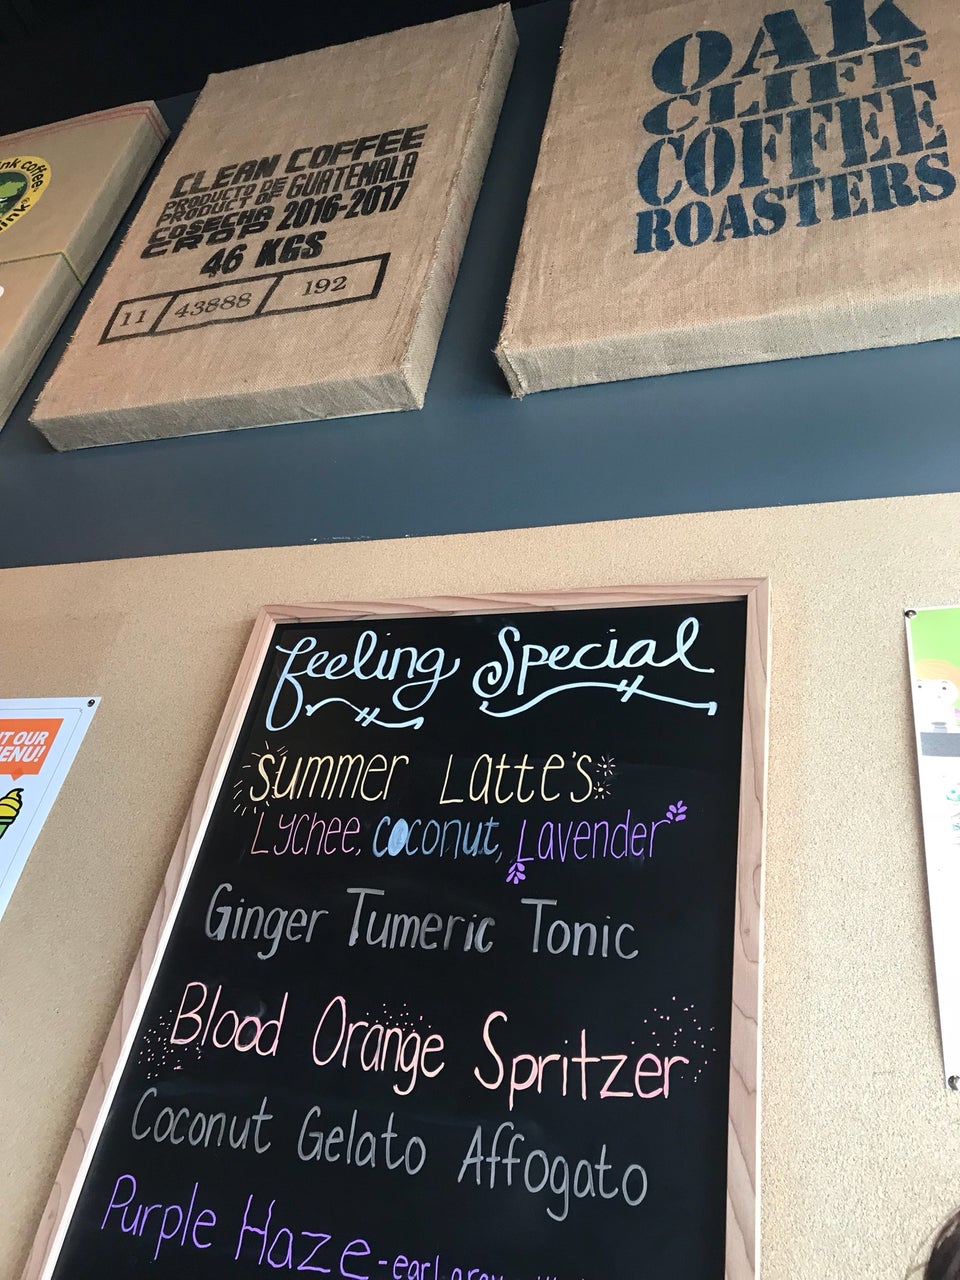 ink coffee
ink
CLEAN COFFEE
PRODUCTO DE
PRODUCT OF GUATEMALA
COSECHA
CROP 2016-2017
46 KGS
11 43888 192
OAK
CLIFF
COFFEE
ROASTERS
feeling Special
Summer Latte's
Lychee, coconut, Lavender
Ginger Tumeric Tonic
Blood Orange Spritzer
Coconut Gelato Affogato
Purple Haze - earl grey
T OUR
ENU!